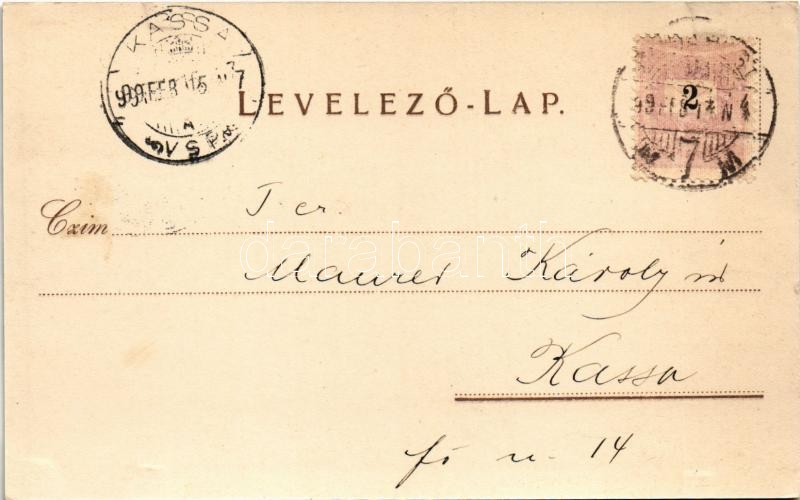 KASSA
99 FEB 15 N 7
A
LEVELEZŐ-LAP.
2
99 FEB 14 N 4
7
M
Czim
T cz.
Maurer Károly úr
Kassa
fő u. 14
darabanth